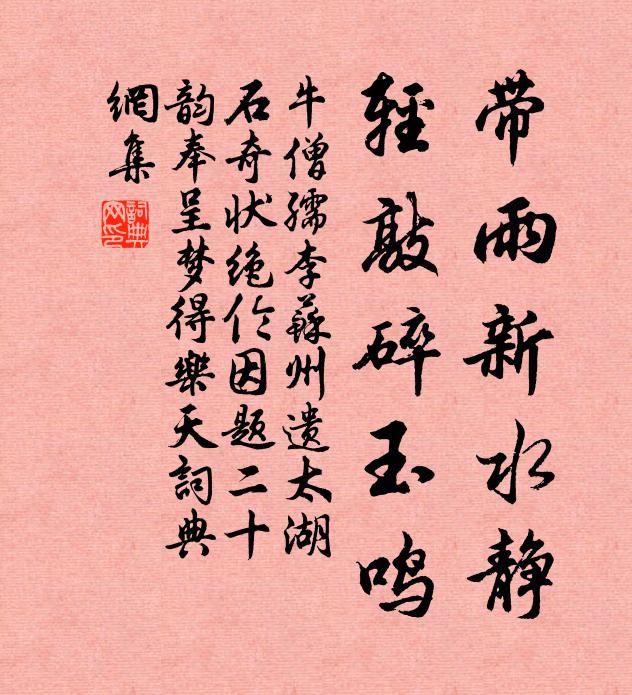 带雨新水静
轻敲碎玉鸣
牛僧孺李蘇州遗太湖
石奇状绝伦因题二十
韵奉呈梦得樂天詞典
網集
詞典
网印